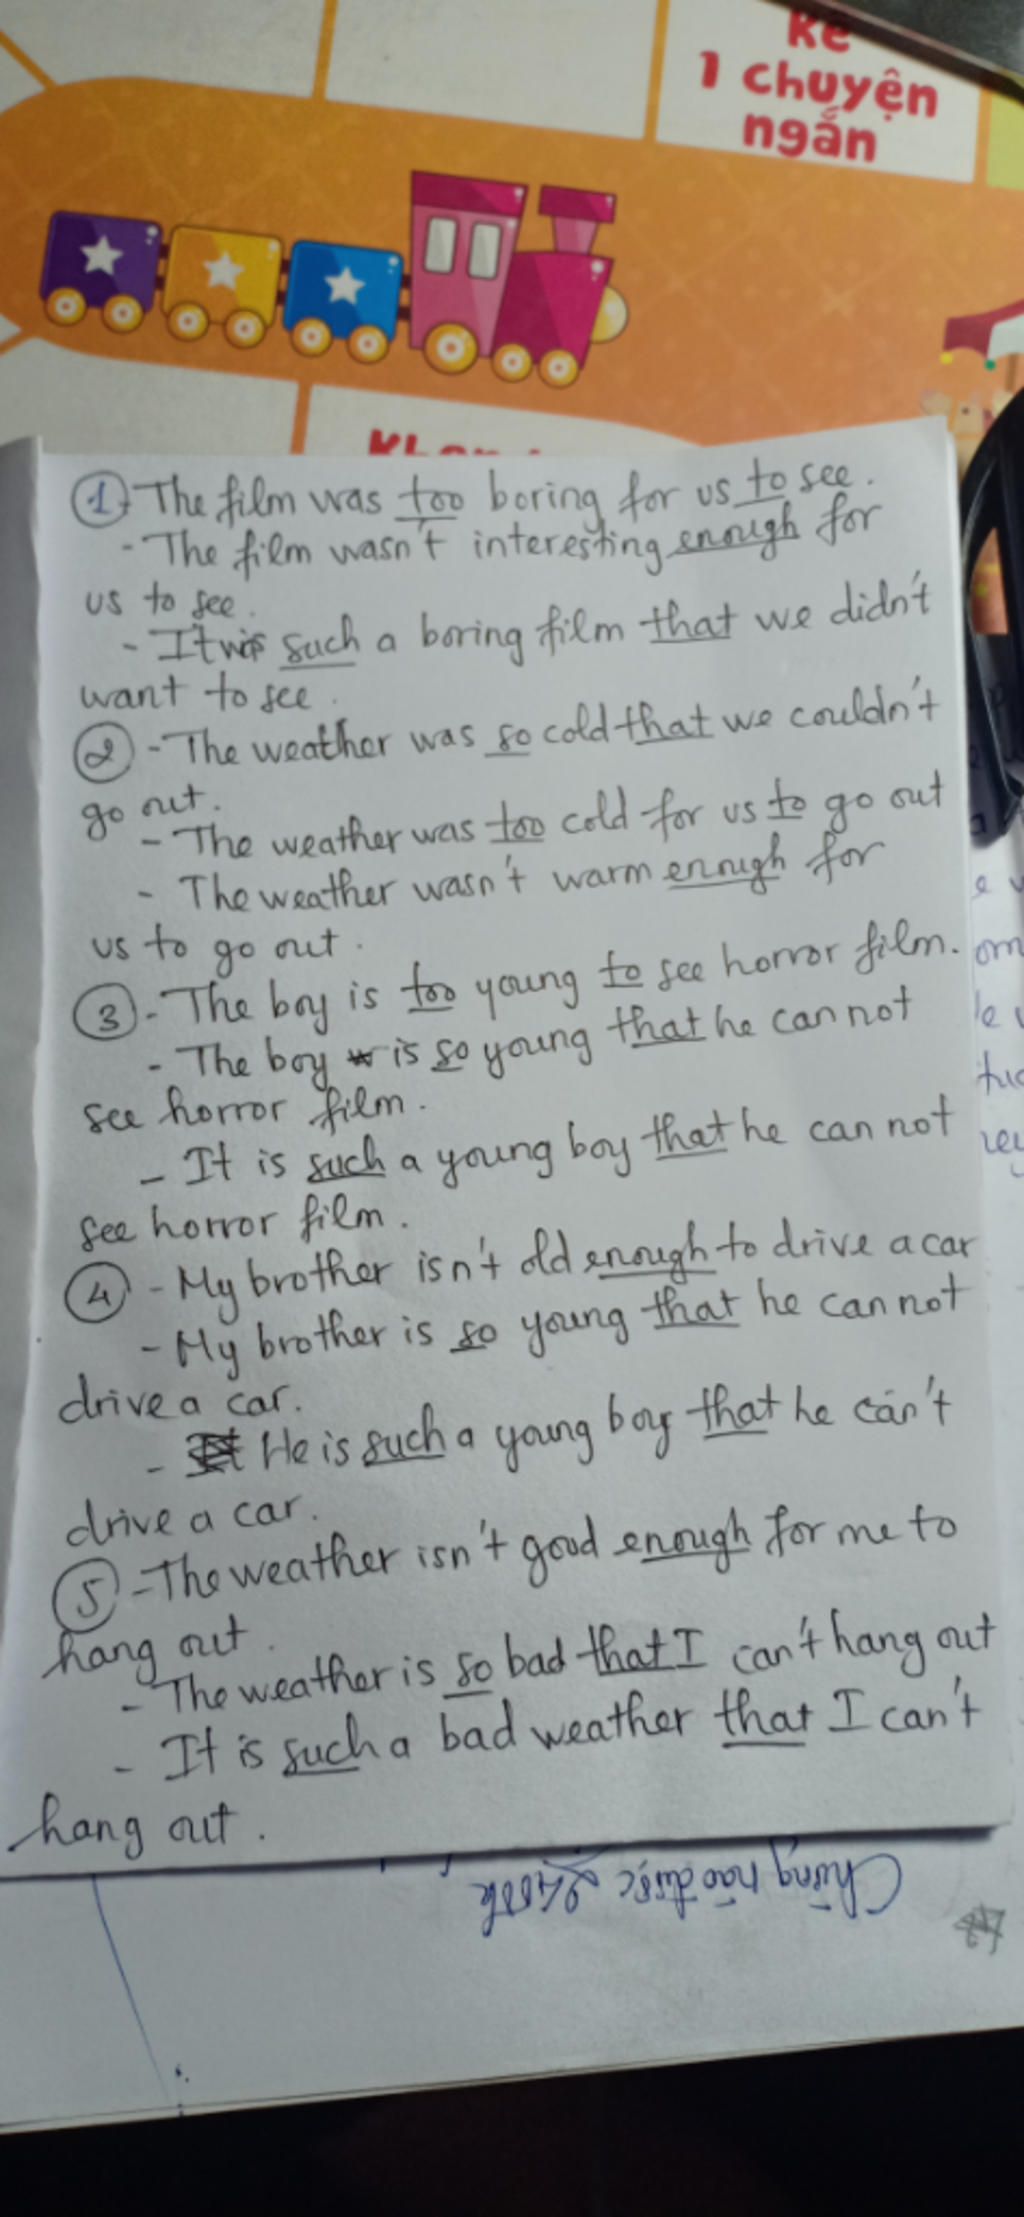 Kể
1 chuyện
ngắn
① - The film was too boring for us to see.
- The film wasn't interesting enough for
us to see.
- It was such a boring film that we didn't
want to see.
② - The weather was so cold that we couldn't
go out.
- The weather was too cold for us to go out
- The weather wasn't warm enough for
us to go out.
③ - The boy is too young to see horror film.
- The boy is so young that he can not
see horror film.
- It is such a young boy that he can not
see horror film.
④ - My brother isn't old enough to drive a car
- My brother is so young that he can not
drive a car.
- He is such a young boy that he can't
drive a car.
⑤ - The weather isn't good enough for me to
hang out.
- The weather is so bad that I can't hang out
- It is such a bad weather that I can't
hang out.